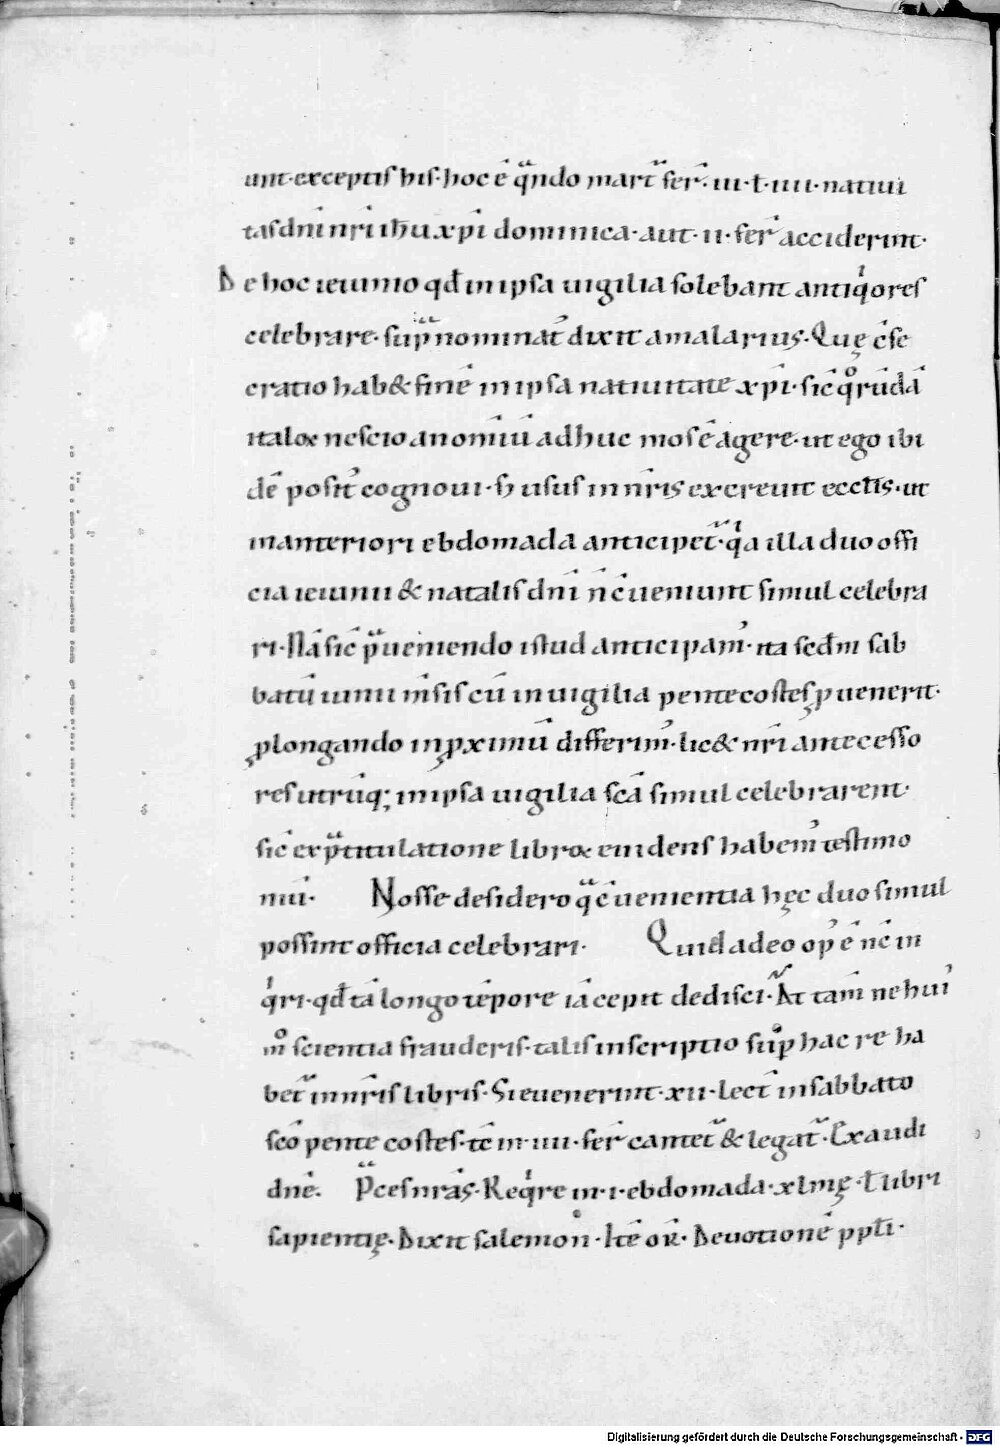 unt·exceptis his·hoc ē q̄ndo mart̄ ser̄·iii·ł·iiii·natiui
tas dn̄i nr̄i ih̄u xp̄i dominica·aut·ii·fer̄ acciderint·
De hoc ieiunio qđ in ipsa uigilia solebant antiqͥores
celebrare·sup̄nominat᾽ dixit amalarius·Quę c̄se
cratio hab& finē in ipsa natiuitate xp̄i·sic̄ qͦrūdā
italoꝝ nescio an omīū adhuc mos ē agere·ut ego ibi
dē posit᾽ cognoui·sꝫ usus in nr̄is excreuit eccłis·ut
in anteriori ebdomada anticipet᷑·qͥa illa duo offi
cia ieiunii & natalis dn̄i n̄ c̄ueniunt simul celebra
ri·Nā sic̄ p̄ueniendo istud anticipam᾽·ita secđm sab
batū iunii m̄sis cū in uigilia pentecostes ꝓuenerit·
ꝓlongando in ꝓximū differim᾽·lic& nr̄i antecesso
res utrūq; in ipsa uigilia sc̄a simul celebrarent·
sic̄ ex p̄titulatione libroꝝ euidens habem᾽ testimo
niū· Nosse desidero q̄ c̄uenientia hęc duo simul
possint officia celebrari· Quid adeo op᾽ ē nc̄ in
qͥri·qđ tā longo tēpore iā cepit dedisci·At tam̄ ne hui᾽
mͦ scientia frauderis·talis inscriptio sup̄ hac re ha
bet᷑ in nr̄is libris·Si euenerint·xii·lect̄ in sabbato
sc̄o pentecostes·tc̄ in·iiii·fer̄ cantet᷑ & legat᷑·Exaudi
dn̄e. P̄ces nr̄as·Reqͥre in·i·ebdomada·xlmę·Ł libri
sapientię·Dixit salemon·Itē or̄·Deuotionē ppłi·
Digitalisierung gefördert durch die Deutsche Forschungsgemeinschaft - DFG